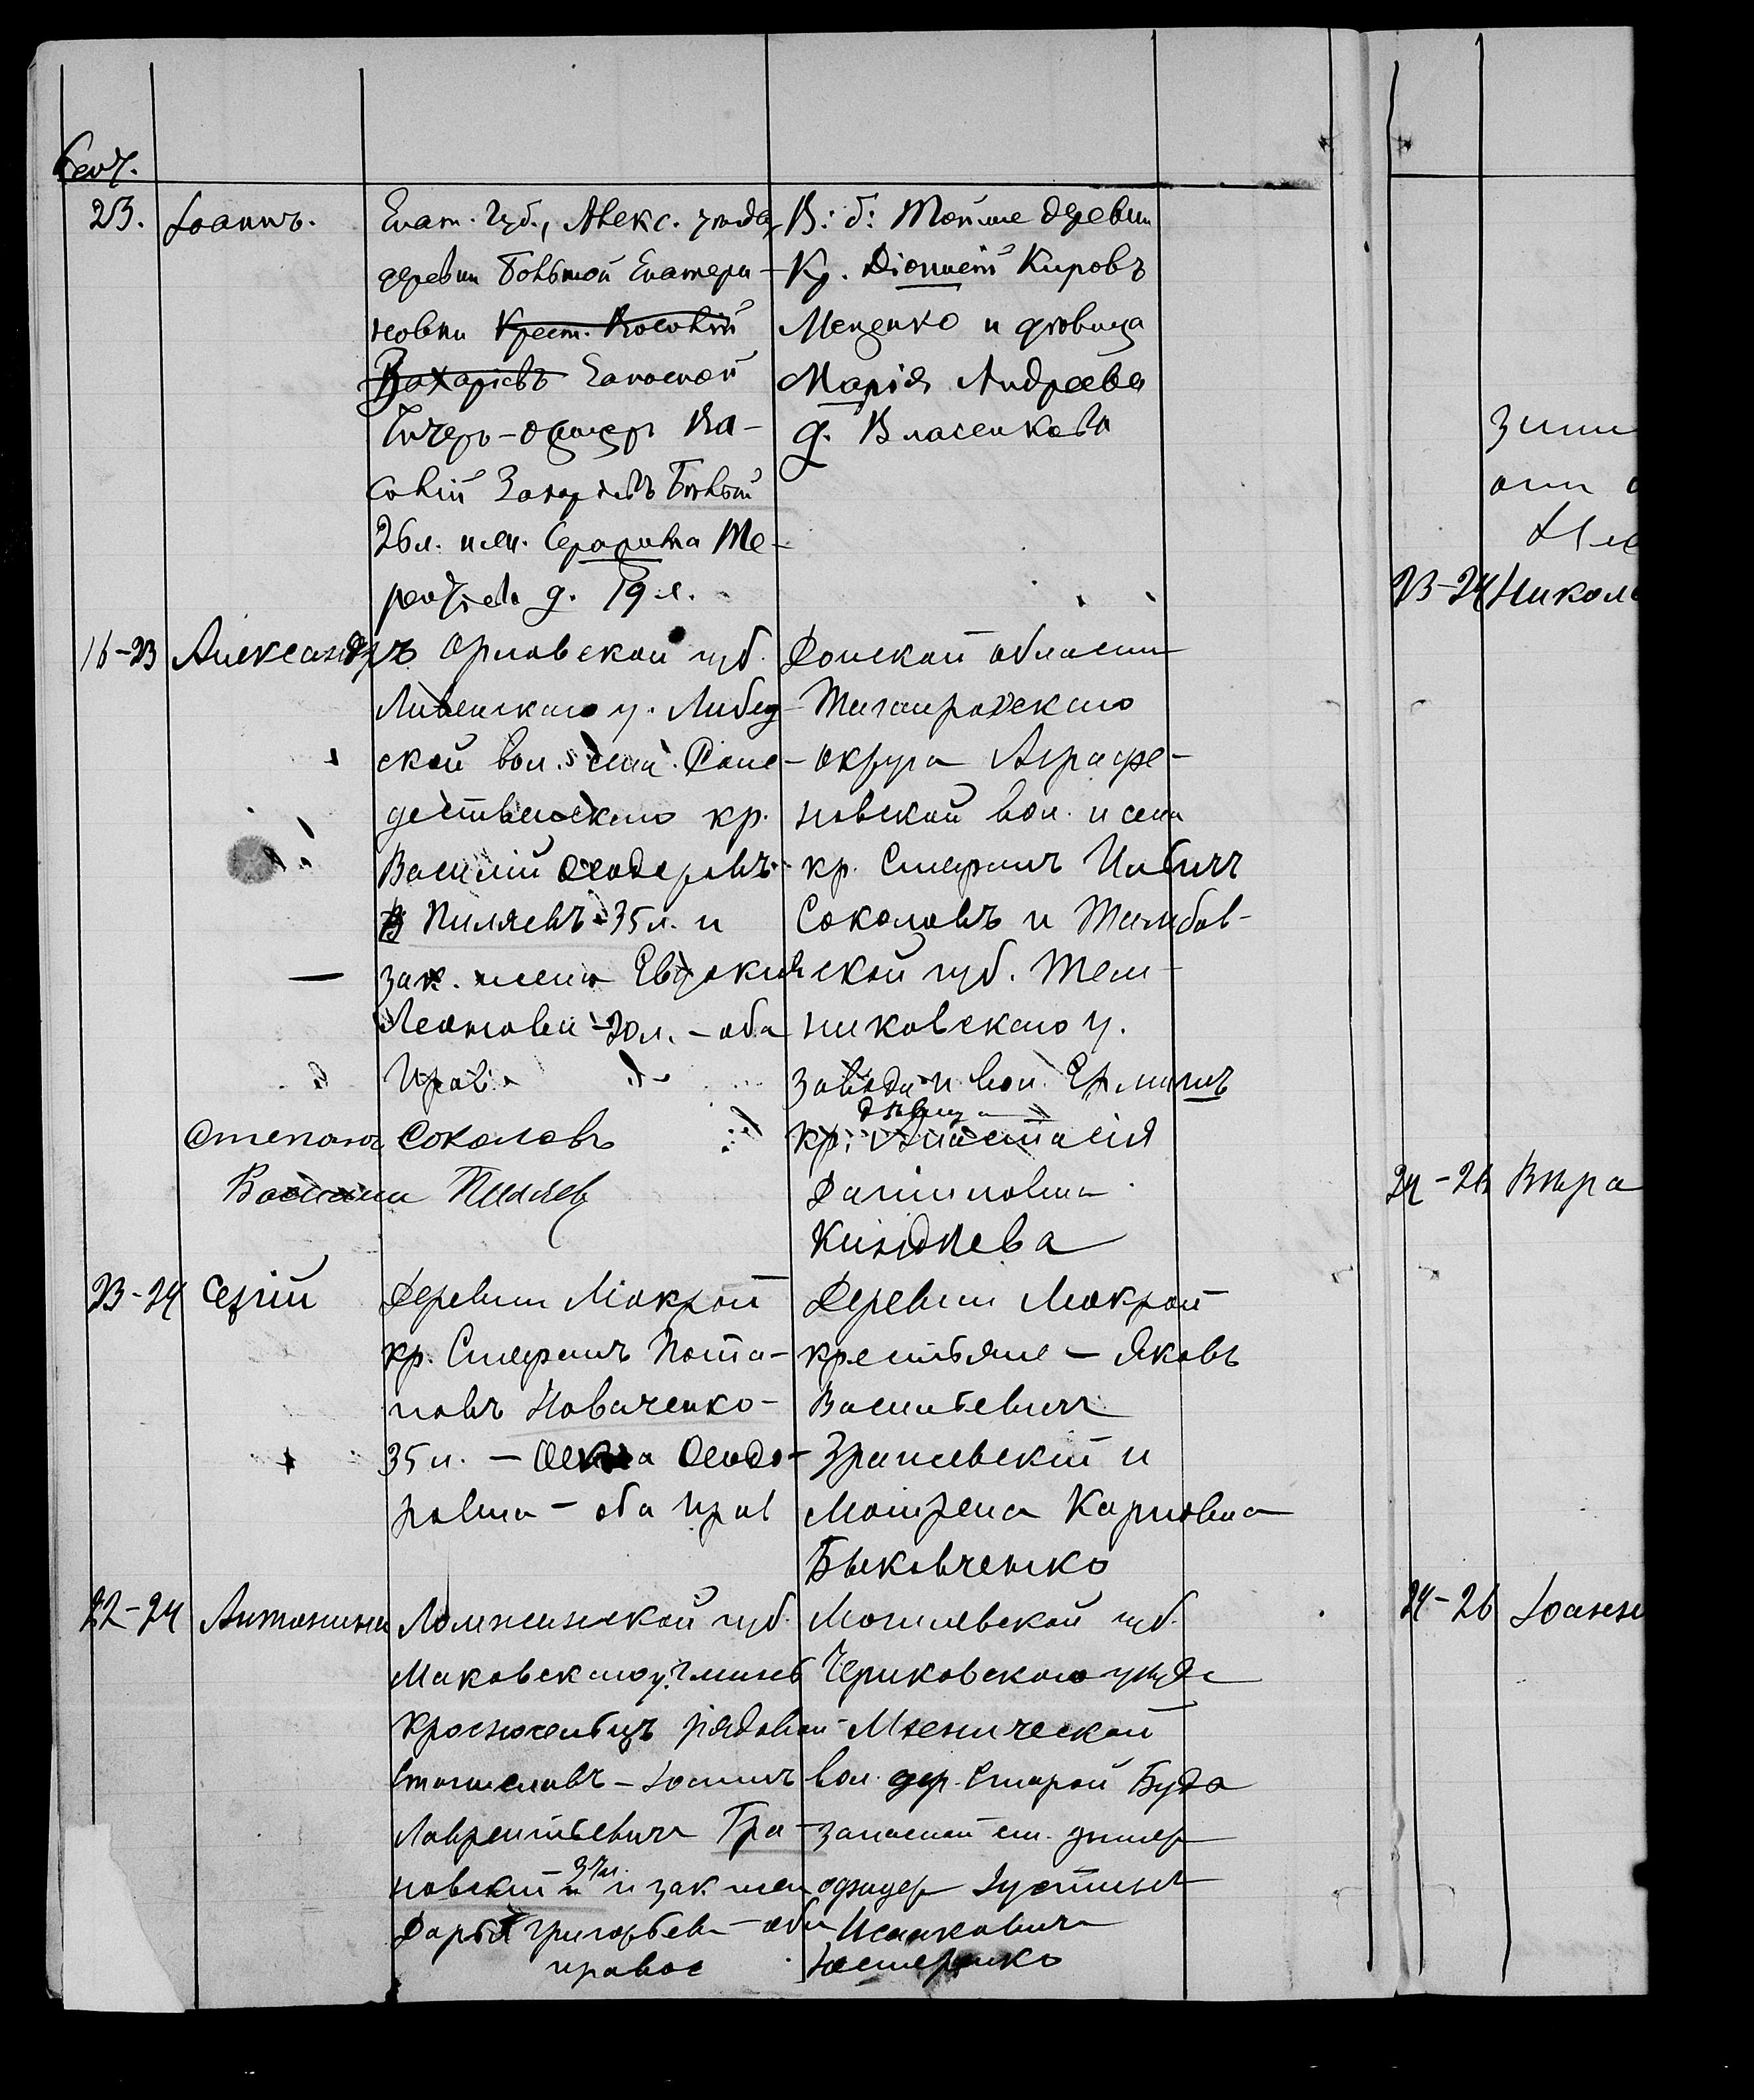 Сент.
23. Іоаннъ.
Екат. губ., Алекс. уѣзда,
деревни Большой Екатери-
новки Крест. Восолій
Захаріевъ Запасной
Унтеръ-офицеръ Ва-
солій Захаріевъ Бѣлый
26 л. и жен. Серафима Те-
рентіева д. 19 л.
В: б: Тойже деревни
Кр. Діонисій Кировъ
Меценко и дѣвица
Марія Андреева
д. Власенкова
16-23 Александръ
Орловской губ.
Ливенскаго у.
ской вол. села Рож-
дественскаго кр.
Василій Ѳеодоровъ
Пиляевъ - 35 л. и
зак. жена Евдокія
Леонова - 30 л. - оба
прав.
Степанъ Соколовъ
Василий Пиляев
Донской области
Таганрогскаго
округа Аграфе-
новской вол. и села
кр. Стефанъ
Соколовъ и Тамбов-
ской губ. Тем-
никовскаго у.
завода и вол. Ермишь
дѣвица
кр. Анастасія
Даниловна
Киндяева
23-24 Сергій
Деревни Мокрой
кр. Стефанъ Пота-
повъ Новаченко -
35 л. - Ѳекла Ѳеодо-
ровна - оба прав
Деревни Мокрой
крестьяне - Яковъ
Васильевичъ
и
Мотрена Карповна
Быковченко
22-24 Антонина
Ломжинской губ.
Маковскаго у. гмины
Красносельцъ рядовой
Станиславъ - Іоаннъ
Лаврентьевичъ Гра-
новскій 37 л. и зак. жен
Дарья Григорьева - оба
правос
Могилевской губ.
Чериковскаго уѣзда
вол. дер. Старой Буда
запасной ст. унтер
офицер Іустинъ
Исааковичъ
Нестеренко
зини
они
23-24 Никола
24-26 Вѣра
24-26 Іоанн